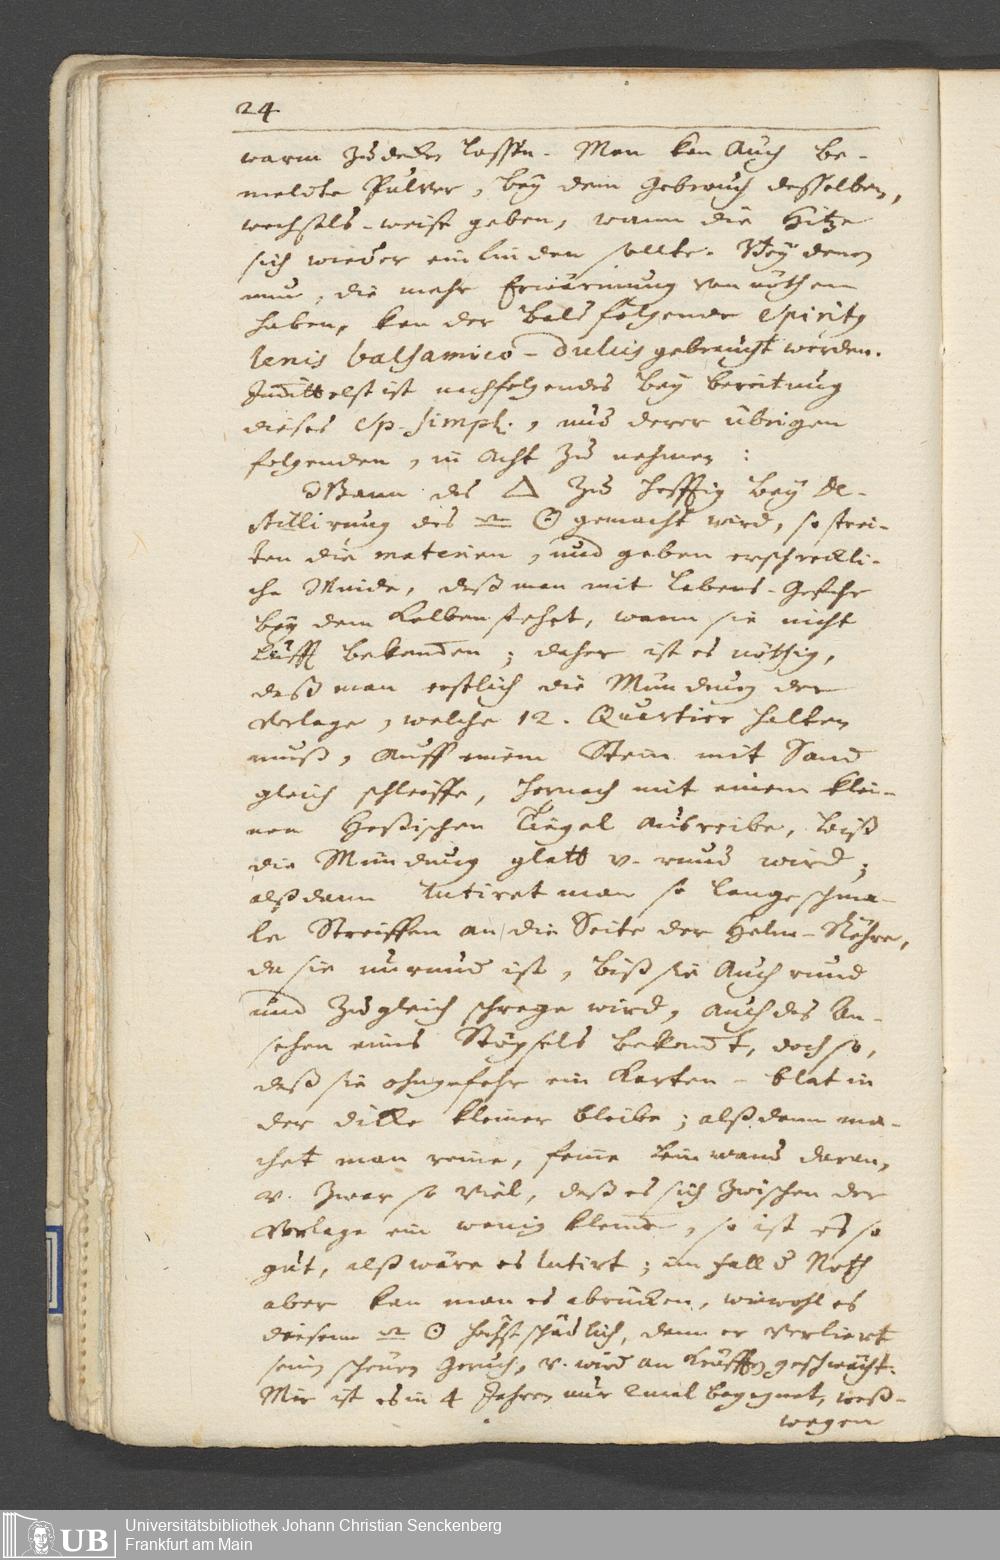 24
warm zudecken lassen. Man kan Auch be-
meldte Pulver, bey dem Gebrauch desselben,
wechsels-weise geben, wann die Hitze
sich wieder einfinden sollte. Bey denen
nun, die mehr Erwärmung vonnöthen
haben, kan der bald folgende Spiritus
lenis balsamico-dulcis gebraucht werden.
Indittelst ist nachfolgendes bey bereitung
dieses Sp. simpl., und derer übrigen
folgenden, in Acht zu nehmen:
Wann das △ zu hefftig bey De-
stillirung des ☉ gemacht wird, so strei-
ten die materien, und geben erschreckli-
che Winde, daß man mit Lebens-Gefahr
bey dem Kolben stehet, wann sie nicht
Lufft bekommen; daher ist es nöthig,
daß man erstlich die Mündung der
Vorlage, welche 12. Quartier halten
muß, Auff einem Stein mit Sand
gleich schleiffe, hernach mit einem klei-
nen Heßischen Tiegel ausreibe, biß
die Mündung glatt v. rund wird;
alßdann lutiret man so lange schma-
le Streiffen an die Seite der Helm-Röhre,
da sie unrund ist, biß sie Auch rund
und zugleich schrege wird, auch das An-
sehen eines Stöpsels bekommt, doch so,
daß sie ohngefehr ein Karten-blat in
der dicke kleiner bleibe; alßdann ma-
chet man reine, feine Leinwand daran,
v. zwar so viel, daß es sich zwischen der
Vorlage ein wenig klemme, so ist es so
gut, alß wäre es lutirt; im fall d Noth
aber kan man es abrücken, wiewohl es
diesem ☉ höchst schädlich, denn er verliert
seinen Geruch, v. wird an Kräfften geschwächt.
Mir ist es in 4 Jahren nur 2mal begegnet, weß-
wegen
UB Universitätsbibliothek Johann Christian Senckenberg
Frankfurt am Main